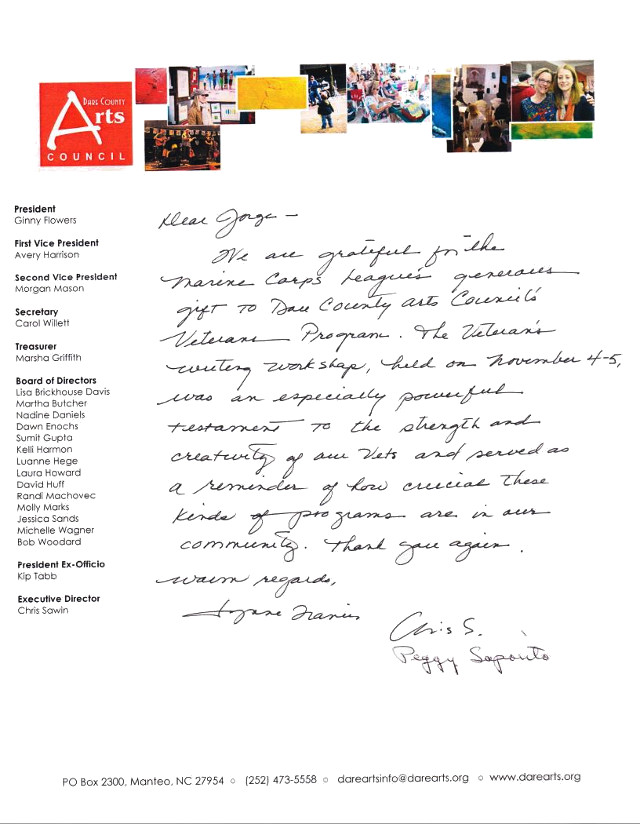 DARE COUNTY
Arts
COUNCIL
President
Ginny Flowers
First Vice President
Avery Harrison
Second Vice President
Morgan Mason
Secretary
Carol Willett
Treasurer
Marsha Griffith
Board of Directors
Lisa Brickhouse Davis
Martha Butcher
Nadine Daniels
Dawn Enochs
Sumit Gupta
Kelli Harmon
Luanne Hege
Laura Howard
David Huff
Randi Machovec
Molly Marks
Jessica Sands
Michelle Wagner
Bob Woodard
President Ex-Officio
Kip Tabb
Executive Director
Chris Sawin
Dear Jorge –
We are grateful for the
Marine Corps League's generous
gift to Dare County Arts Council's
Veterans Program. The Veteran's
writing workshop, held on November 4-5,
was an especially powerful
testament to the strength and
creativity of our Vets and served as
a reminder of how crucial these
kinds of programs are in our
community. Thank you again.
Warm regards,
Lynne Francis
Chris S.
Peggy Saporito
PO Box 2300, Manteo, NC 27954 ○ (252) 473-5558 ○ dareartsinfo@darearts.org ○ www.darearts.org